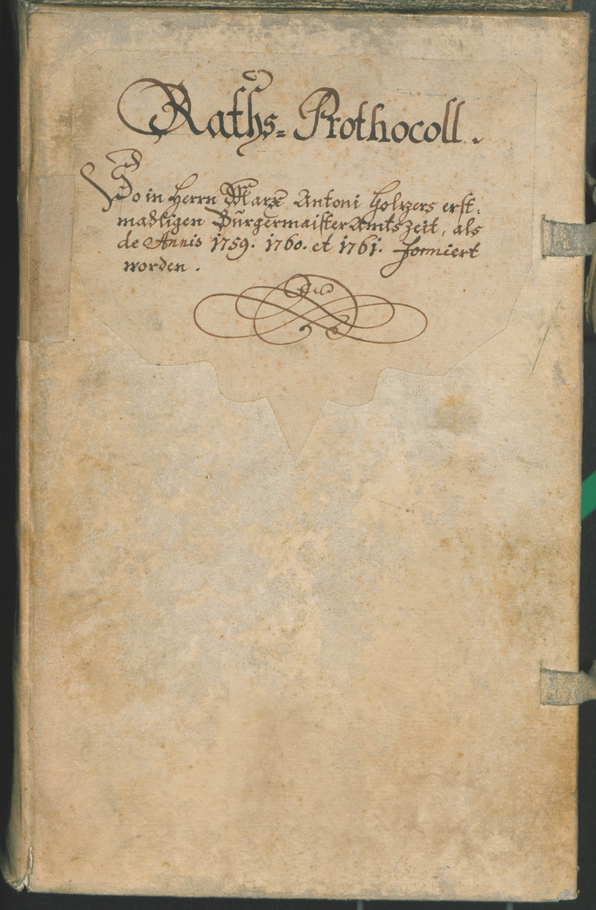 Raths= Prothocoll.
So in Herrn Marx Antoni Holzers erst=
mahligen Burgermaister Amts zeit, als
de Annis 1759. 1760. et 1761. formiert
worden.